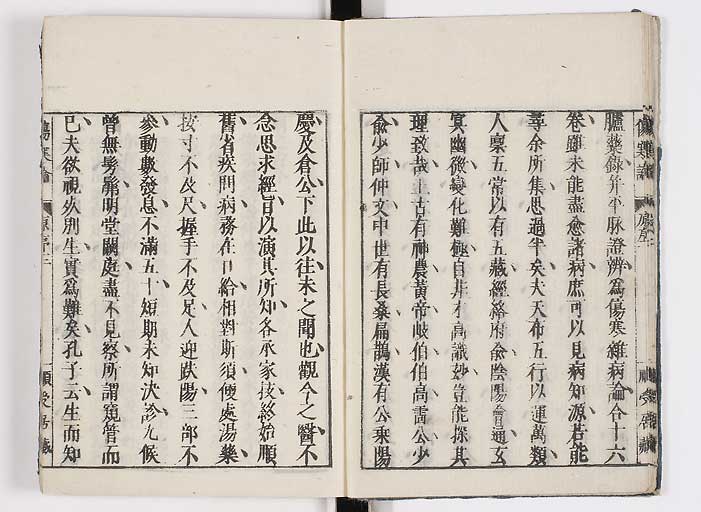 臚藥錄并平脉證辨爲傷寒雜病論合十六
卷雖未能盡愈諸病庶可以見病知源若能
尋余所集思過半矣夫天布五行以運萬類
人稟五常以有五藏經絡府兪陰陽會通玄
冥幽微變化難極自非才高識妙豈能探其
理致哉上古有神農黃帝岐伯伯高雷公少
兪少師仲文中世有長桑扁鵲漢有公乘陽
慶及倉公下此以往未之聞也觀今之醫不
念思求經旨以演其所知各承家技終始順
舊省疾問病務在口給相對斯須便處湯藥
按寸不及尺握手不及足人迎趺陽三部不
參動數發息不滿五十短期未知決診九候
曾無髣髴明堂闕庭盡不見察所謂窺管而
已夫欲視死別生實爲難矣孔子云生而知
傷寒論 原序二 順受居藏